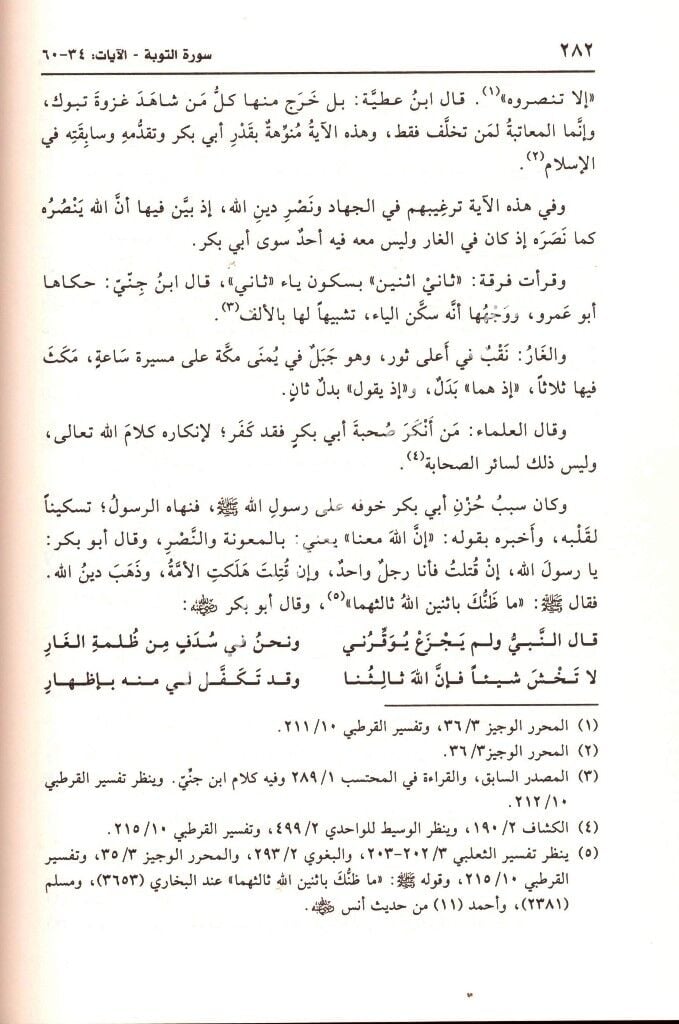 ٢٨٢
سورة التوبة - الآيات: ٣٤-٦٠
«إلا تنصروه»(١). قال ابنُ عطيَّة: بل خَرَج منها كلُّ مَن شاهَدَ غزوةَ تبوك،
وإنَّما المعاتبةُ لمَن تخلَّف فقط، وهذه الآيةُ مُنوِّهةٌ بقَدْرِ أبي بكر وتقدُّمهِ وسابِقَتِه في
الإسلام(٢).
وفي هذه الآية ترغيبهم في الجهاد ونَصْرِ دينِ الله، إذ بيَّن فيها أنَّ الله يَنْصُرُه
كما نَصَرَه إذ كان في الغار وليس معه فيه أحدٌ سوى أبي بكر.
وقرأت فرقة: «ثانيْ اثنين» بسكون ياء «ثاني»، قال ابنُ جِنّيّ: حكاها
أبو عَمرو، ووَجْهُها أنَّه سكَّن الياء، تشبيهاً لها بالألف(٣).
والغَارُ: نَقْبٌ في أعلى ثور، وهو جَبَلٌ في يُمنَى مكَّة على مسيرة سَاعةٍ، مَكَثَ
فيها ثلاثاً، «إذ هما» بَدَلٌ، و«إذ يقول» بدلٌ ثانٍ.
وقال العلماء: مَن أَنْكَرَ صُحبةَ أبي بكرٍ فقد كَفَر؛ لإنكاره كلامَ الله تعالى،
وليس ذلك لسائر الصحابة(٤).
وكان سببُ حُزْنِ أبي بكر خوفه على رسولِ الله ﷺ، فنهاه الرسولُ؛ تسكيناً
لقَلْبه، وأَخبره بقوله: «إنَّ اللهَ معنا» يعني: بالمعونة والنَّصْرِ، وقال أبو بكر:
يا رسولَ الله، إنْ قُتلتُ فأنا رجلٌ واحدٌ، وإن قُتِلتَ هَلَكتِ الأمَّةُ، وذَهَبَ دينُ الله.
فقال ﷺ: «ما ظَنُّكَ باثنين اللهُ ثالثهما»(٥)، وقال أبو بكر رضي الله عنه:
قال النَّبيُّ ولم يَجْزَعْ يُوَقِّرُني ونحنُ في سُدَفٍ مِن ظُلمةِ الغَارِ
لا تَخْشَ شيئاً فإنَّ اللهَ ثالِثُنا وقد تَكَفَّل لي منه بإظهارِ
(١) المحرر الوجيز ٣/ ٣٦، وتفسير القرطبي ١٠/ ٢١١.
(٢) المحرر الوجيز٣/ ٣٦.
(٣) المصدر السابق، والقراءة في المحتسب ١/ ٢٨٩ وفيه كلام ابن جنّيّ. وينظر تفسير القرطبي
١٠/ ٢١٢.
(٤) الكشاف ٢/ ١٩٠، وينظر الوسيط للواحدي ٢/ ٤٩٩، وتفسير القرطبي ١٠/ ٢١٥.
(٥) ينظر تفسير الثعلبي ٣/ ٢٠٢-٢٠٣، والبغوي ٢/ ٢٩٣، والمحرر الوجيز ٣/ ٣٥، وتفسير
القرطبي ١٠/ ٢١٥، وقوله ﷺ: «ما ظنُّكَ باثنين الله ثالثهما» عند البخاري (٣٦٥٣)، ومسلم
(٢٣٨١)، وأحمد (١١) من حديث أنس رضي الله عنه.